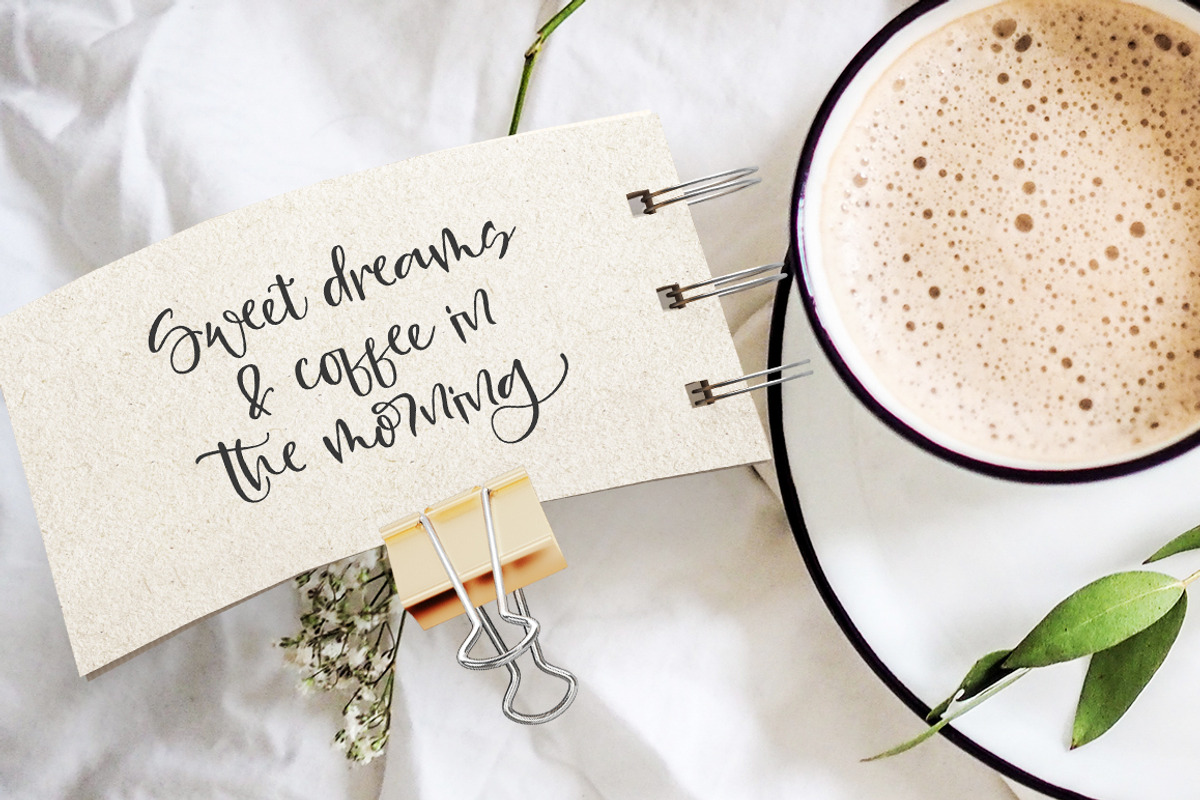 Sweet dreams
& coffee in
the morning